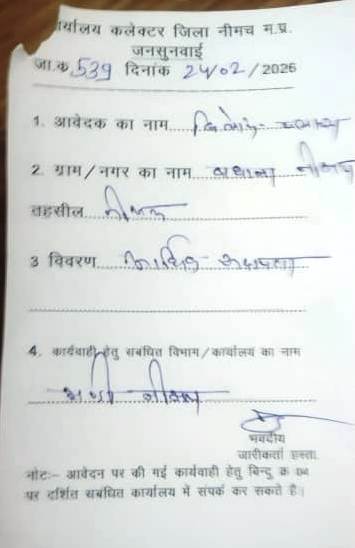 कार्यालय कलेक्टर जिला नीमच म.प्र.
जनसुनवाई
जा.क्र. 539 दिनांक 24/02/2026
1. आवेदक का नाम
2. ग्राम/नगर का नाम बघाना नीमच
तहसील नीमच
3 विवरण आर्थिक सहायता
4. कार्यवाही हेतु सबंधित विभाग/कार्यालय का नाम
नीमच
भवदीय
जारीकर्ता हस्ता.
नोटः- आवेदन पर की गई कार्यवाही हेतु बिन्दु क्र 04
पर दर्शित सबंधित कार्यालय में संपर्क कर सकते है।